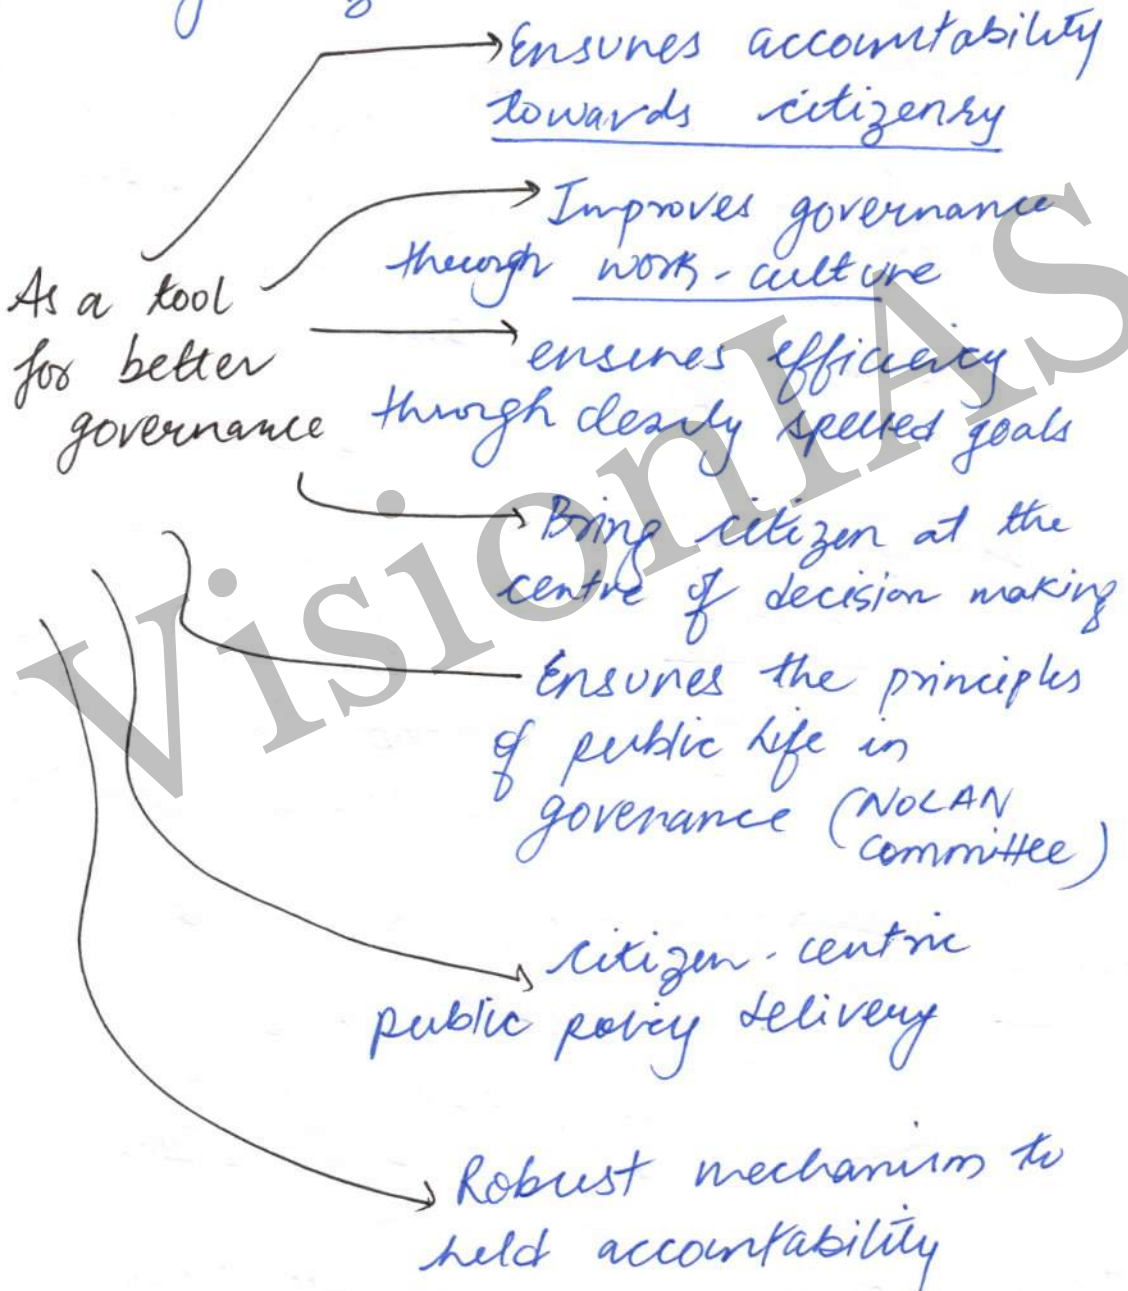 Ensures accountability
towards citizenry
Improves governance
through work-culture
As a tool
for better
governance
ensures efficiency
through clearly spelled goals
Bring citizen at the
centre of decision making
Ensures the principles
of public life in
governance (NOLAN
committee)
citizen-centric
public policy delivery
Robust mechanism to
held accountability
VisionIAS